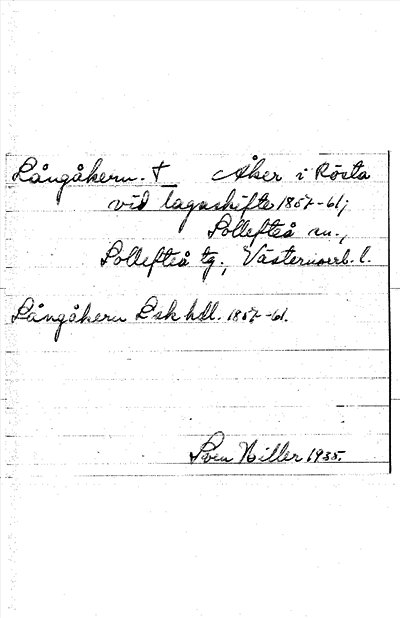 Långåkern. † Åker i Rösta
vid lagaskifte 1857-61;
Sollefteå sn.,
Sollefteå tg., Västernorrl. l.
Långåkern Lsk hdl. 1857-61.
Sven Hiller 1935.